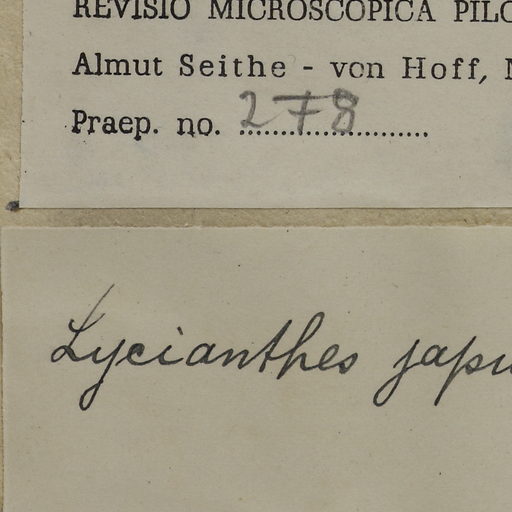 REVISIO MICROSCOPICA PILO
Almut Seithe - von Hoff,
Praep. no. 278
Lycianthes japu